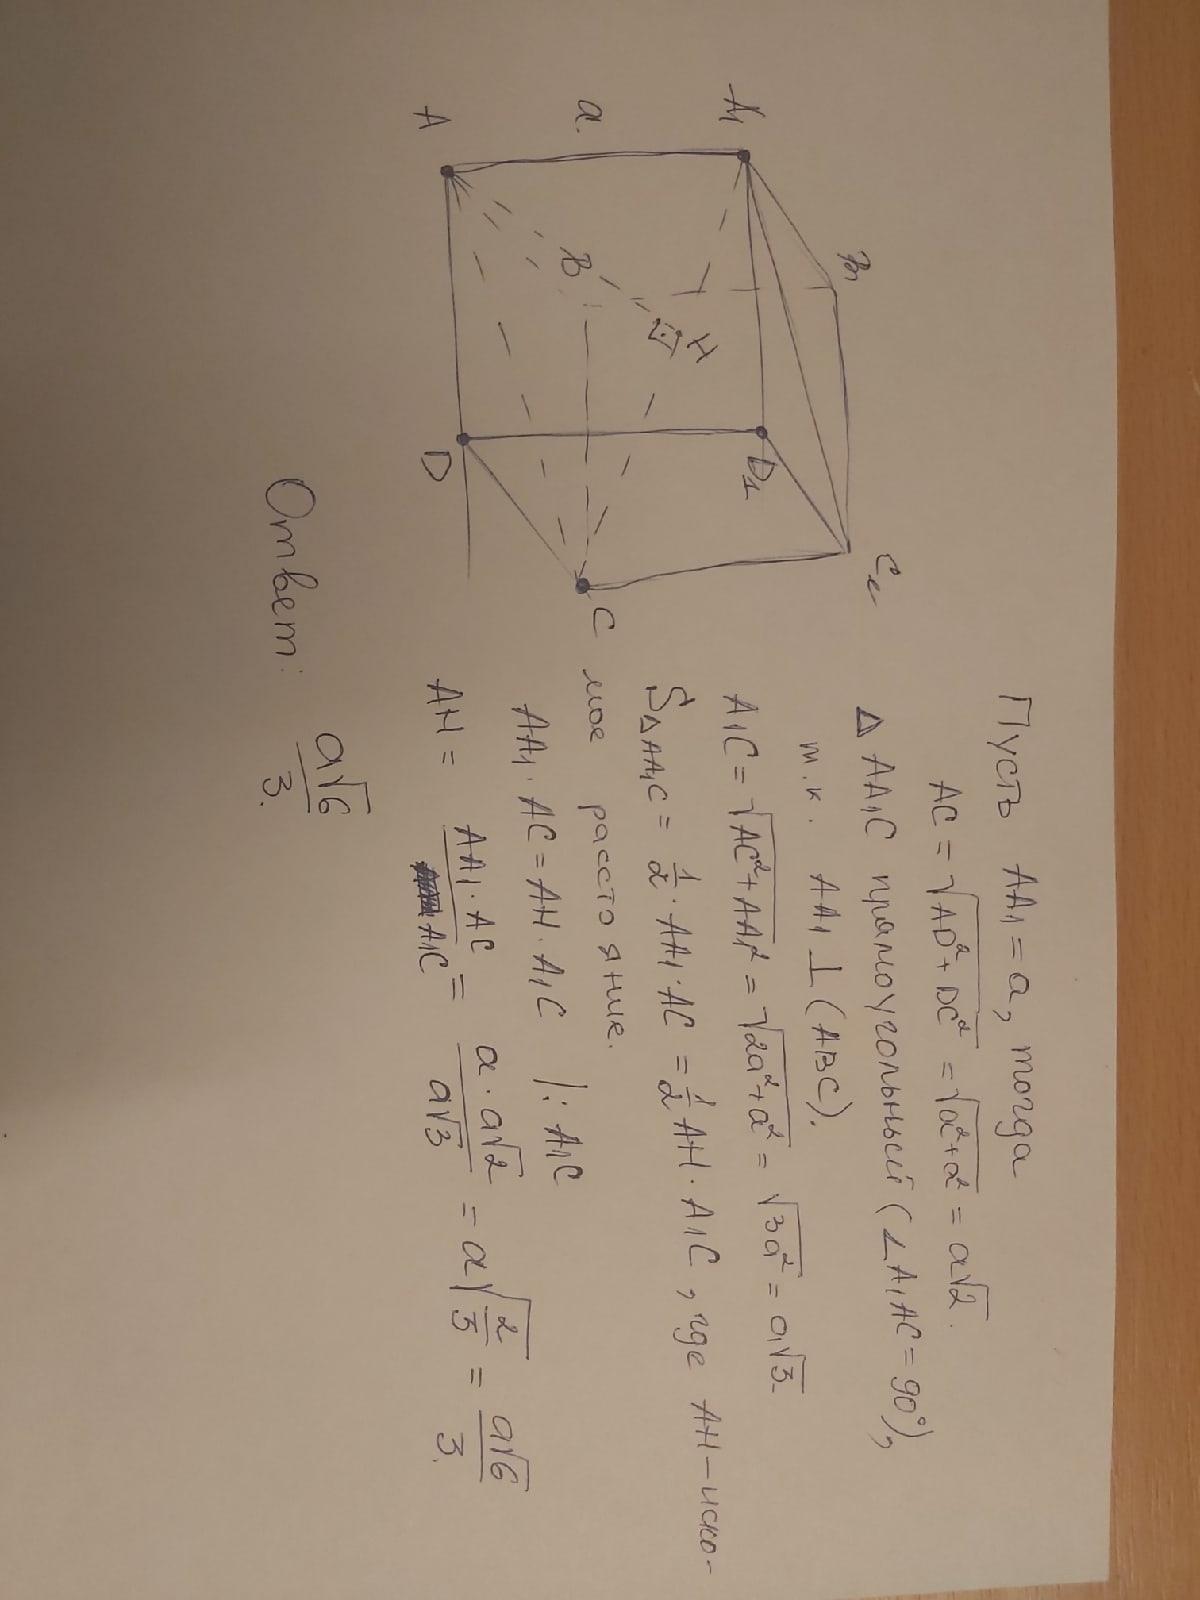 A₁
B₁
C₁
D₁
a
A
B
H
D
C
Пусть AA₁ = a, тогда
AC = √(AD² + DC²) = √(a² + a²) = a√2.
Δ AA₁C прямоугольный (∠A₁AC = 90°),
т.к. AA₁ ⊥ (ABC).
A₁C = √(AC² + AA₁²) = √(2a² + a²) = √(3a²) = a√3.
S△AA₁C = 1/2 · AA₁ · AC = 1/2 AH · A₁C, где AH – иско-
мое расстояние.
AA₁ · AC = AH · A₁C |: A₁C
AH = (AA₁ · AC)/(A₁C) = (a · a√2)/(a√3) = a√(2/3) = a√6/3.
Ответ: a√6/3.